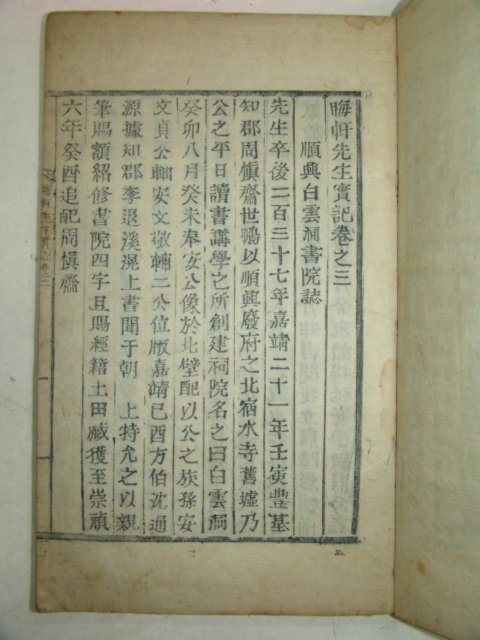 晦軒先生實記卷之三
順興白雲洞書院誌
先生卒後二百三十七年嘉靖二十一年壬寅豐基
知郡周愼齋世鵬以順興廢府之北宿水寺舊墟乃
公之平日讀書講學之所創建祠院名之曰白雲洞
癸卯八月癸未奉安公像於北壁配以公之族孫安
文貞公軸安文敬輔二公位版嘉靖己酉方伯沈通
源據知郡李退溪滉上書聞于朝 上特允之以親
筆賜額紹修書院四字且賜經籍土田臧獲至崇禎
六年癸酉追配周愼齋